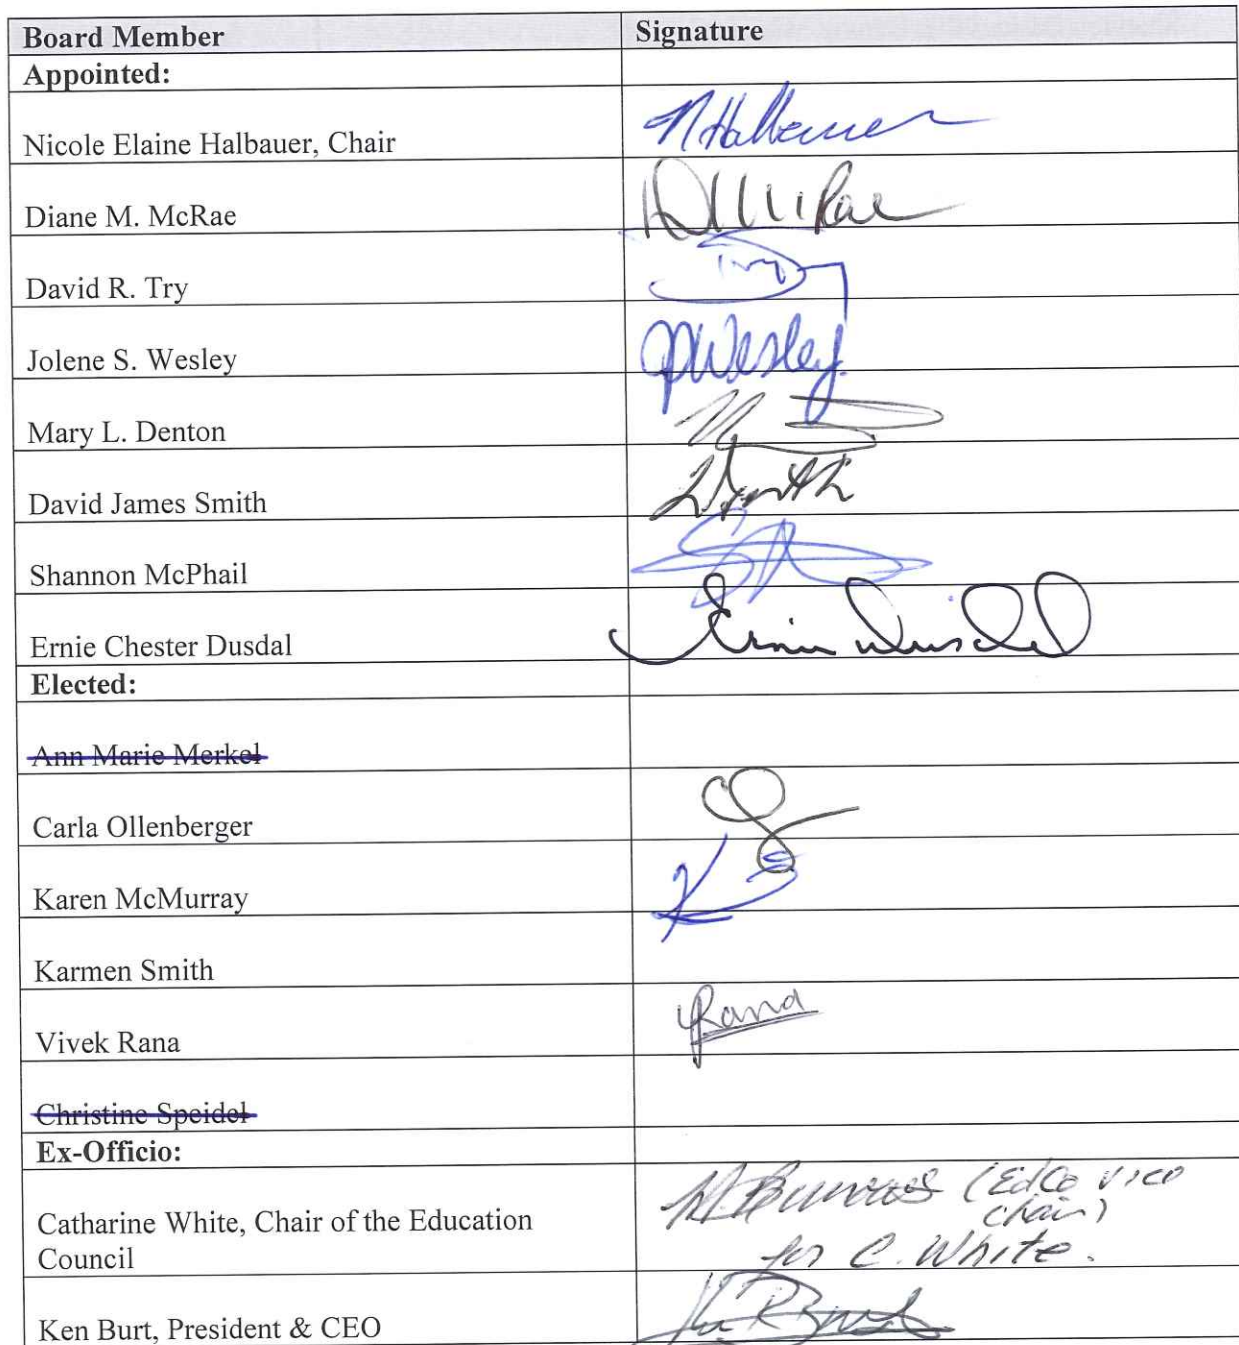 Board Member Signature
Appointed:
Nicole Elaine Halbauer, Chair NHalbauer
Diane M. McRae
David R. Try Try
Jolene S. Wesley Wesley
Mary L. Denton
David James Smith DSmith
Shannon McPhail
Ernie Chester Dusdal Ernie Dusdal
Elected:
Ann Marie Merkel
Carla Ollenberger
Karen McMurray
Karmen Smith
Vivek Rana Rana
Christine Speidel
Ex-Officio:
(EdCo vice
chair)
Catharine White, Chair of the Education
Council for C. White.
Ken Burt, President & CEO